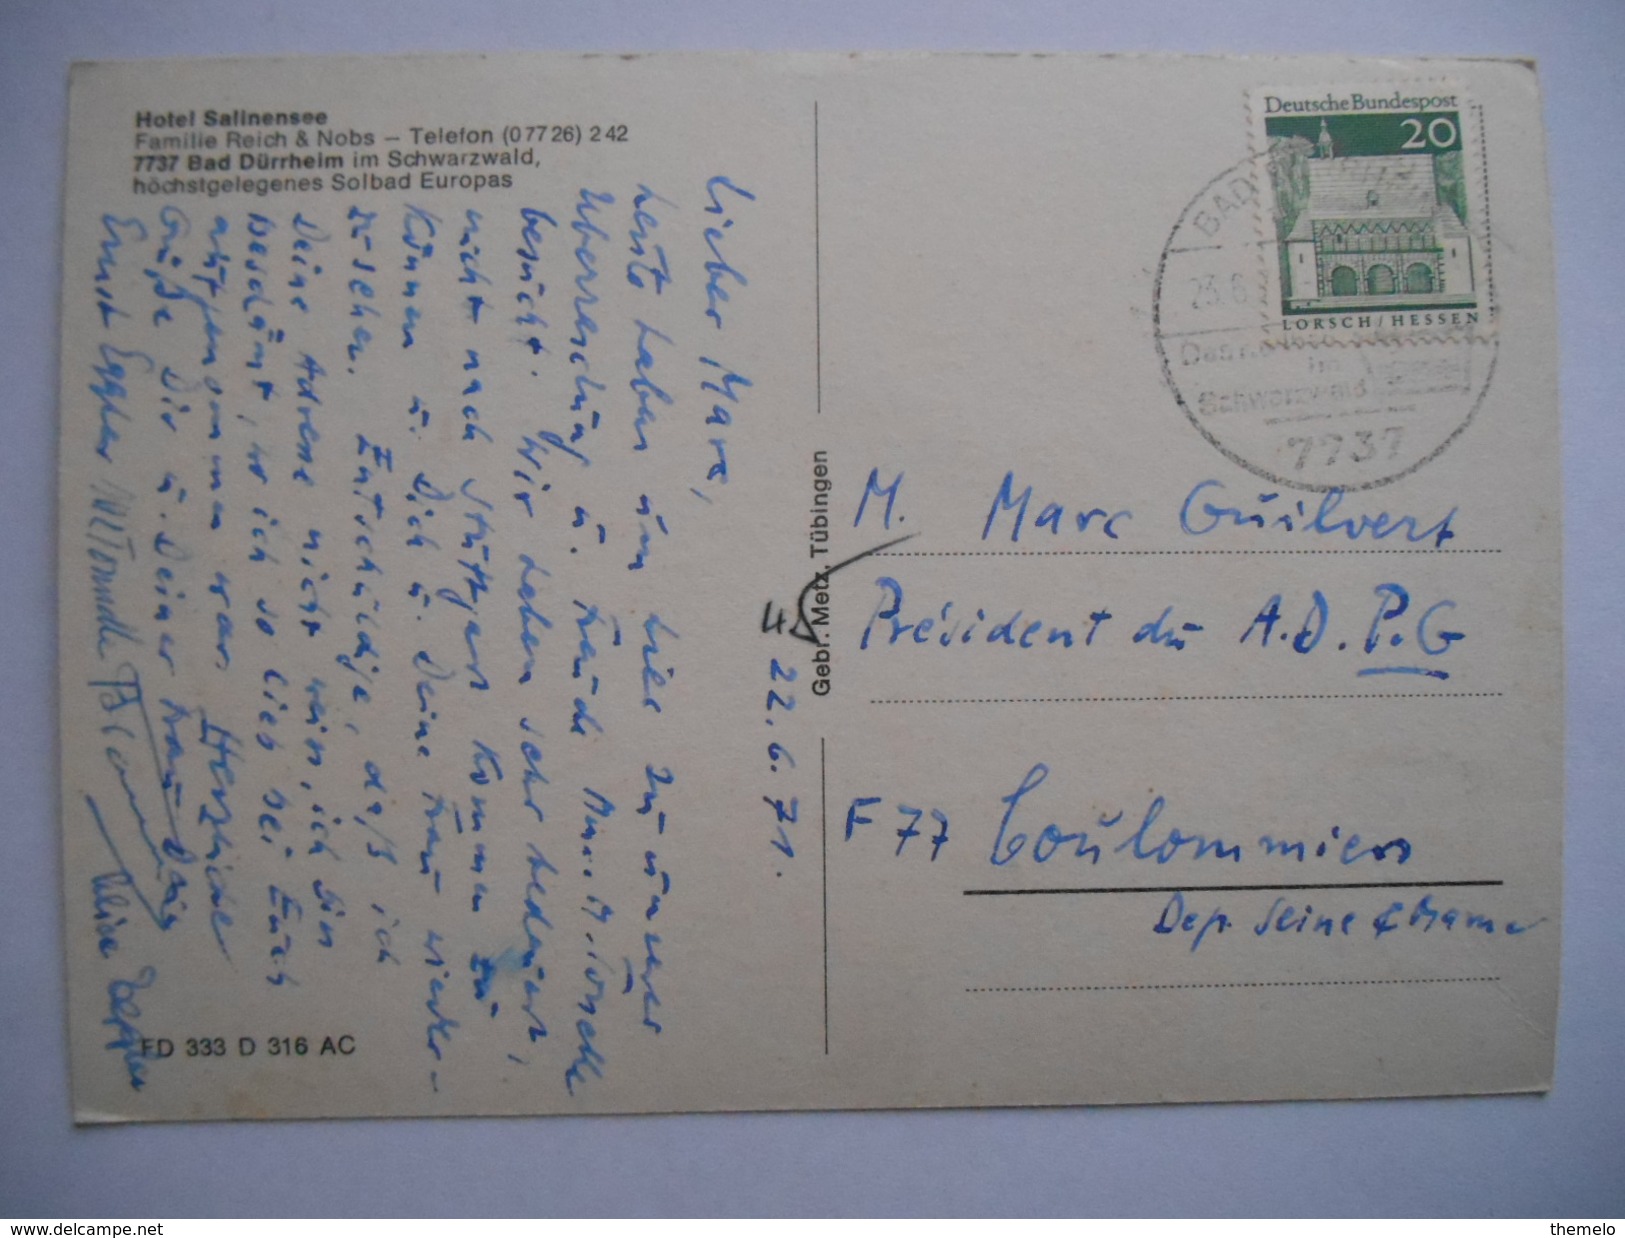 Hotel Salinensee
Familie Reich & Nobs – Telefon (07726) 242
7737 Bad Dürrheim im Schwarzwald,
höchstgelegenes Solbad Europas
Lieber Marc,
heute haben uns hier zu unserer
Überraschung u. Freude
besucht. Wir haben sehr bedauert,
nicht nach Stuttgart kommen zu
können u. Dich u. Deine Frau wieder-
zusehen. Entschuldige, daß ich
Deine Adresse nicht weiß, ich bin
beschämt, wo ich so lieb bei Euch
aufgenommen war. Herzliche
Grüße Dir u. Deiner Frau Dein
Ernst Egpler
22.6.71.
FD 333 D 316 AC
Gebr. Metz, Tübingen
Deutsche Bundespost
20
LORSCH/HESSEN
BAD
23.6
im
Schwarzwald
7737
M. Marc Guilvert
Président du A.D.P.G
F 77 Coulommiers
Dep. Seine & Marne
www.delcampe.net
themelo